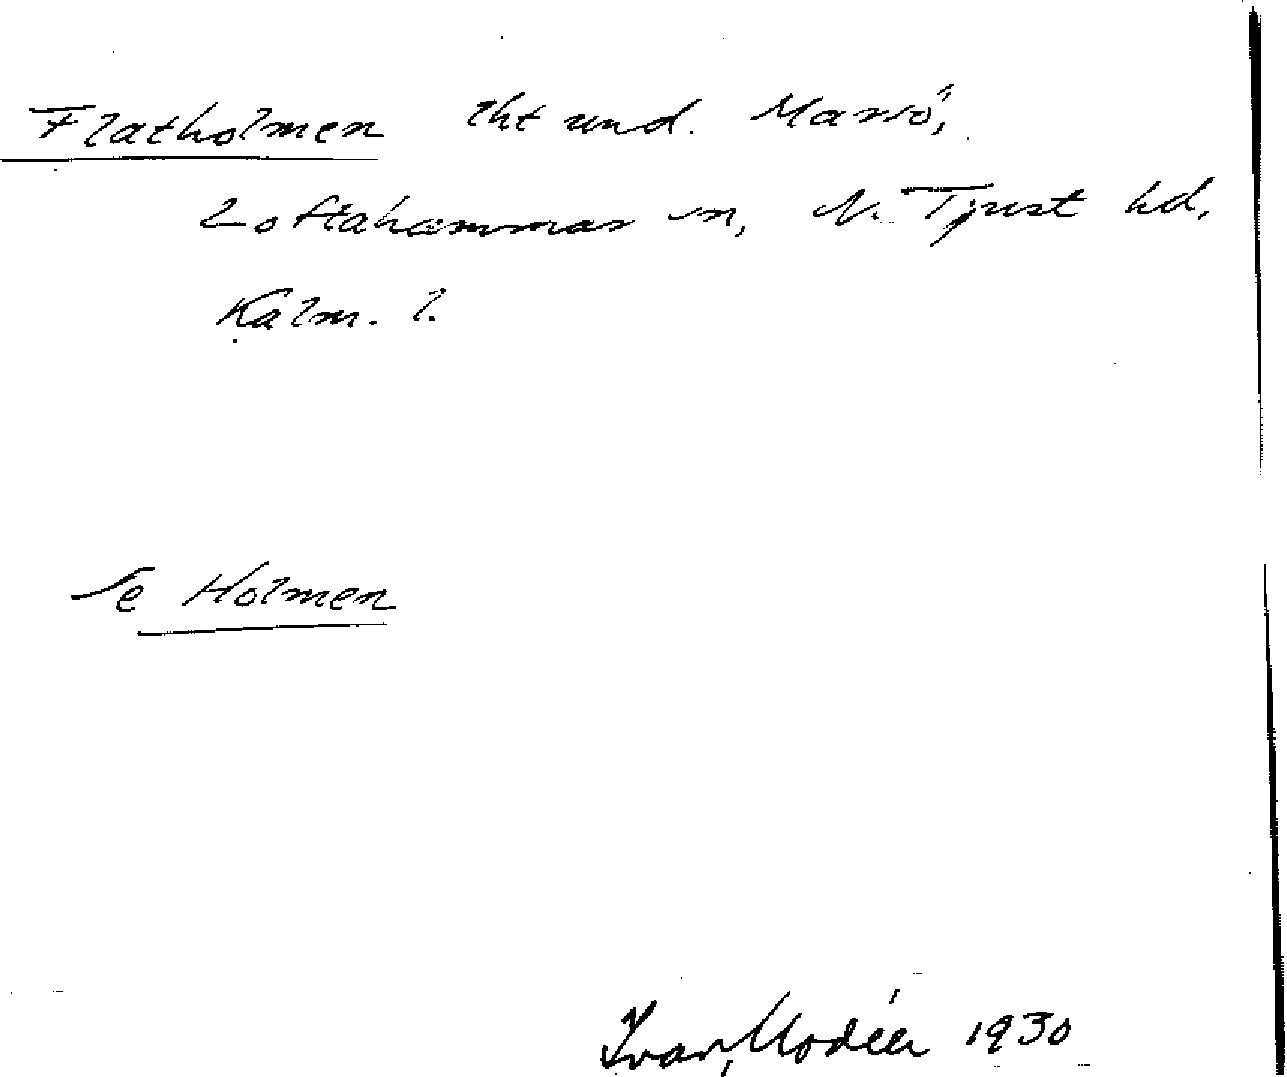 Flatholmen lht und. Marsö,
Loftahammar sn, N. Tjust hd,
Kalm. l.
Se Holmen
Ivar Modéer 1930